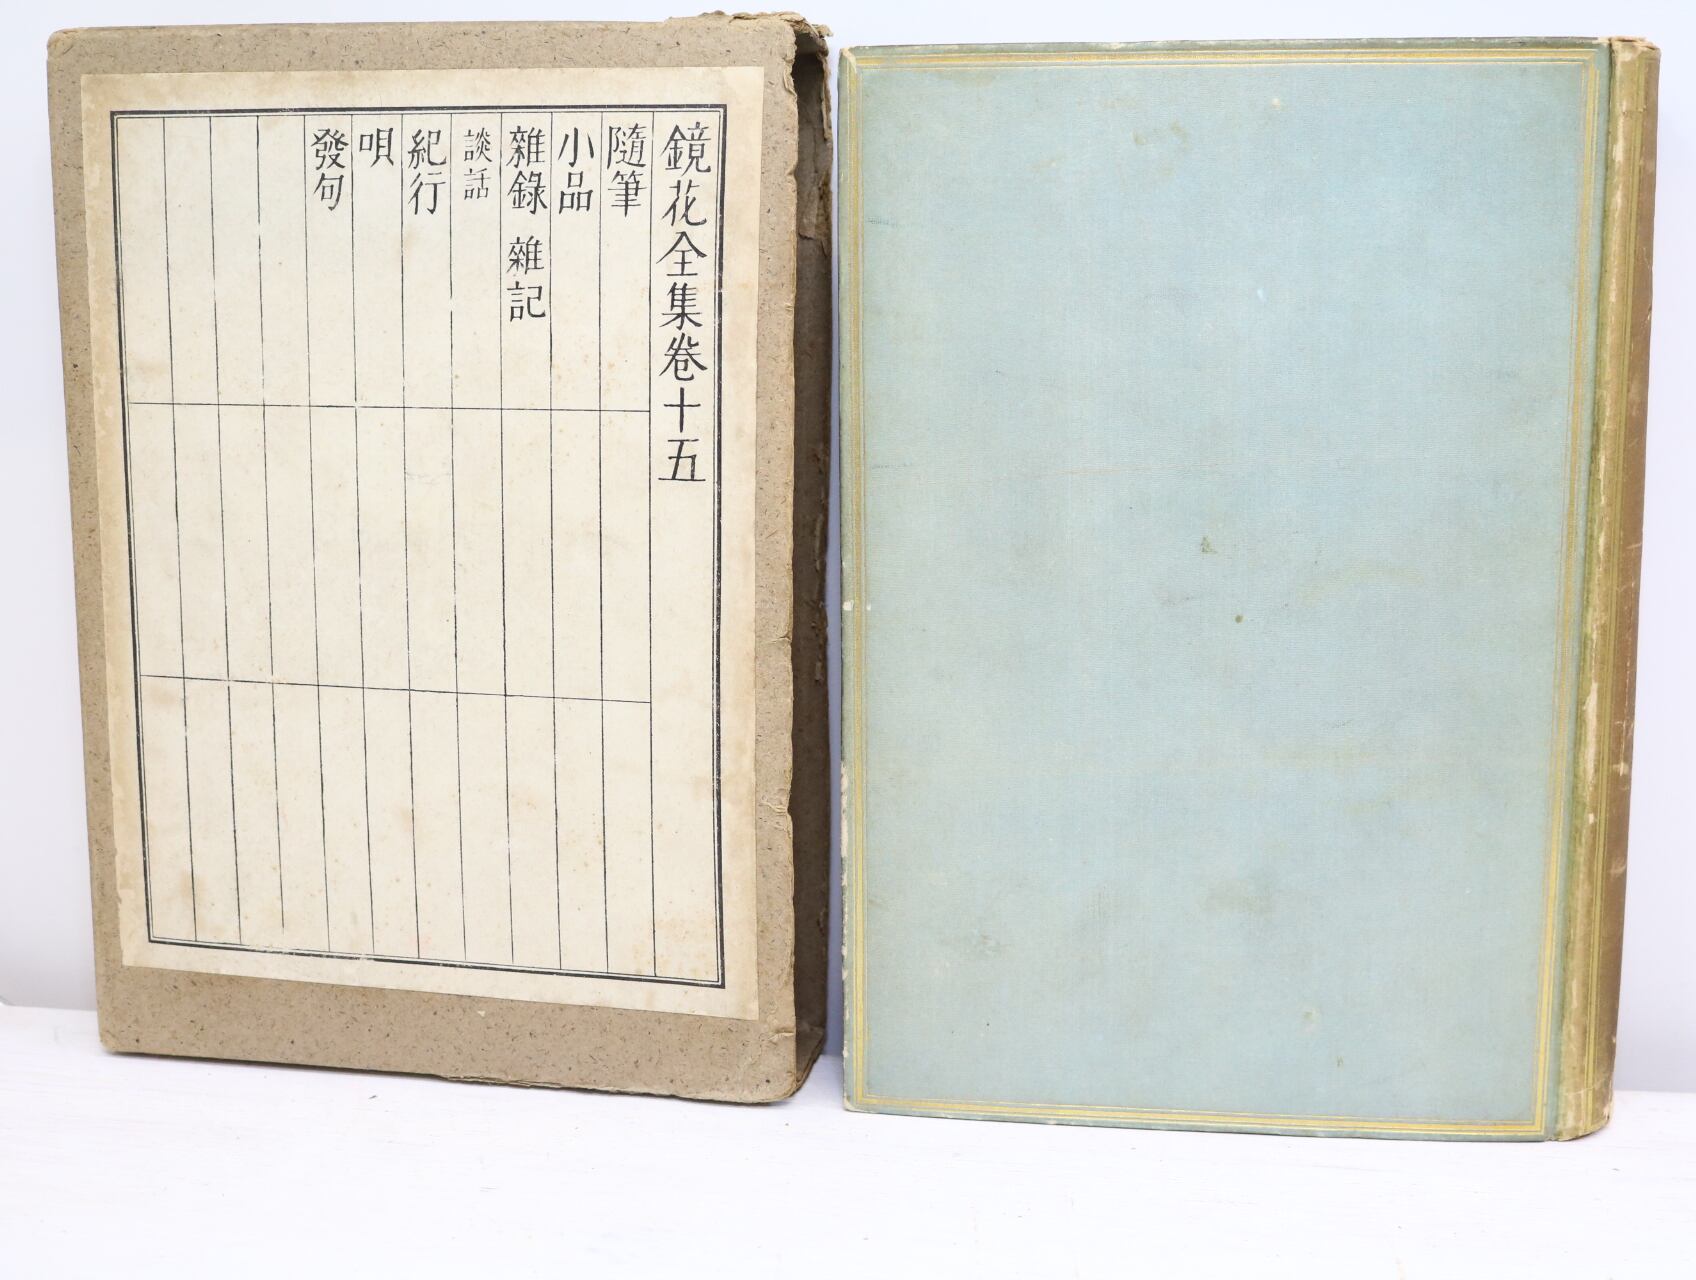 鏡花全集卷十五
隨筆
小品
雜錄 雜記
談話
紀行
唄
發句